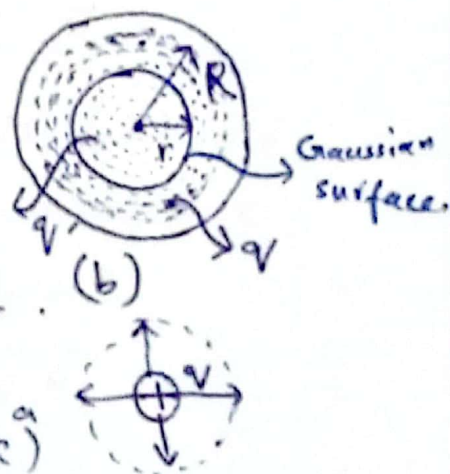 R
r
Gaussian
surface.
q'
q
(b)
q
+
a
c)